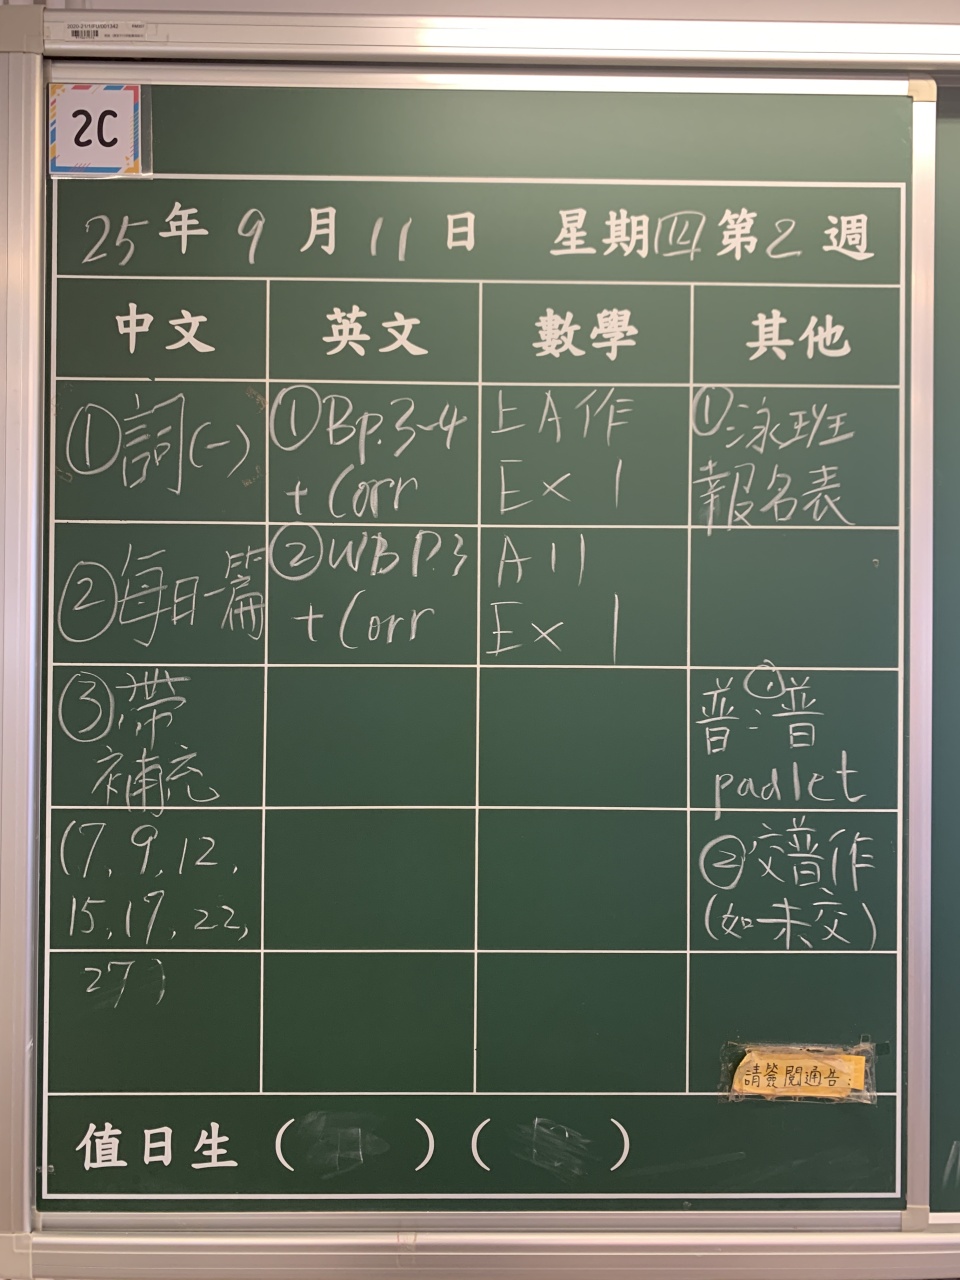 2C
25年9月11日 星期四第2週
中文 英文 數學 其他
①詞(一)
②每日一篇
③帶
補充
(7, 9, 12,
15, 17, 22,
27)
①Bp.3-4
+ Corr
②WB P.3
+ Corr
上A作
Ex 1
A11
Ex 1
①泳班
報名表
①
普:普
padlet
②交普作
(如未交)
請簽閱通告
值日生 ( ) ( )